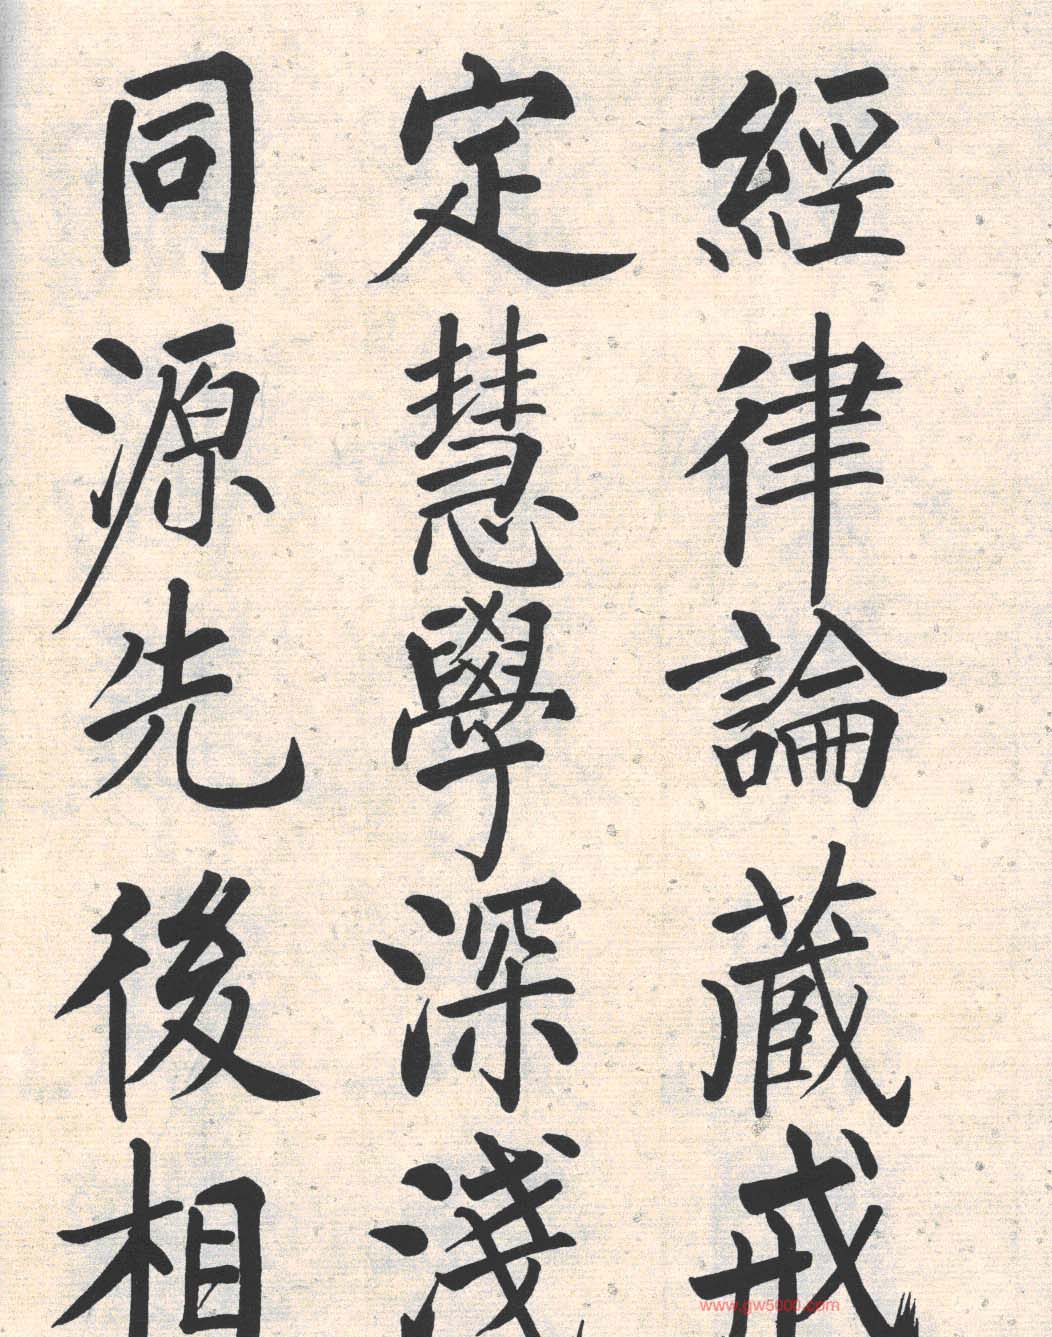 經律論藏戒
定慧學深淺
同源先後相
www.gw5000.com